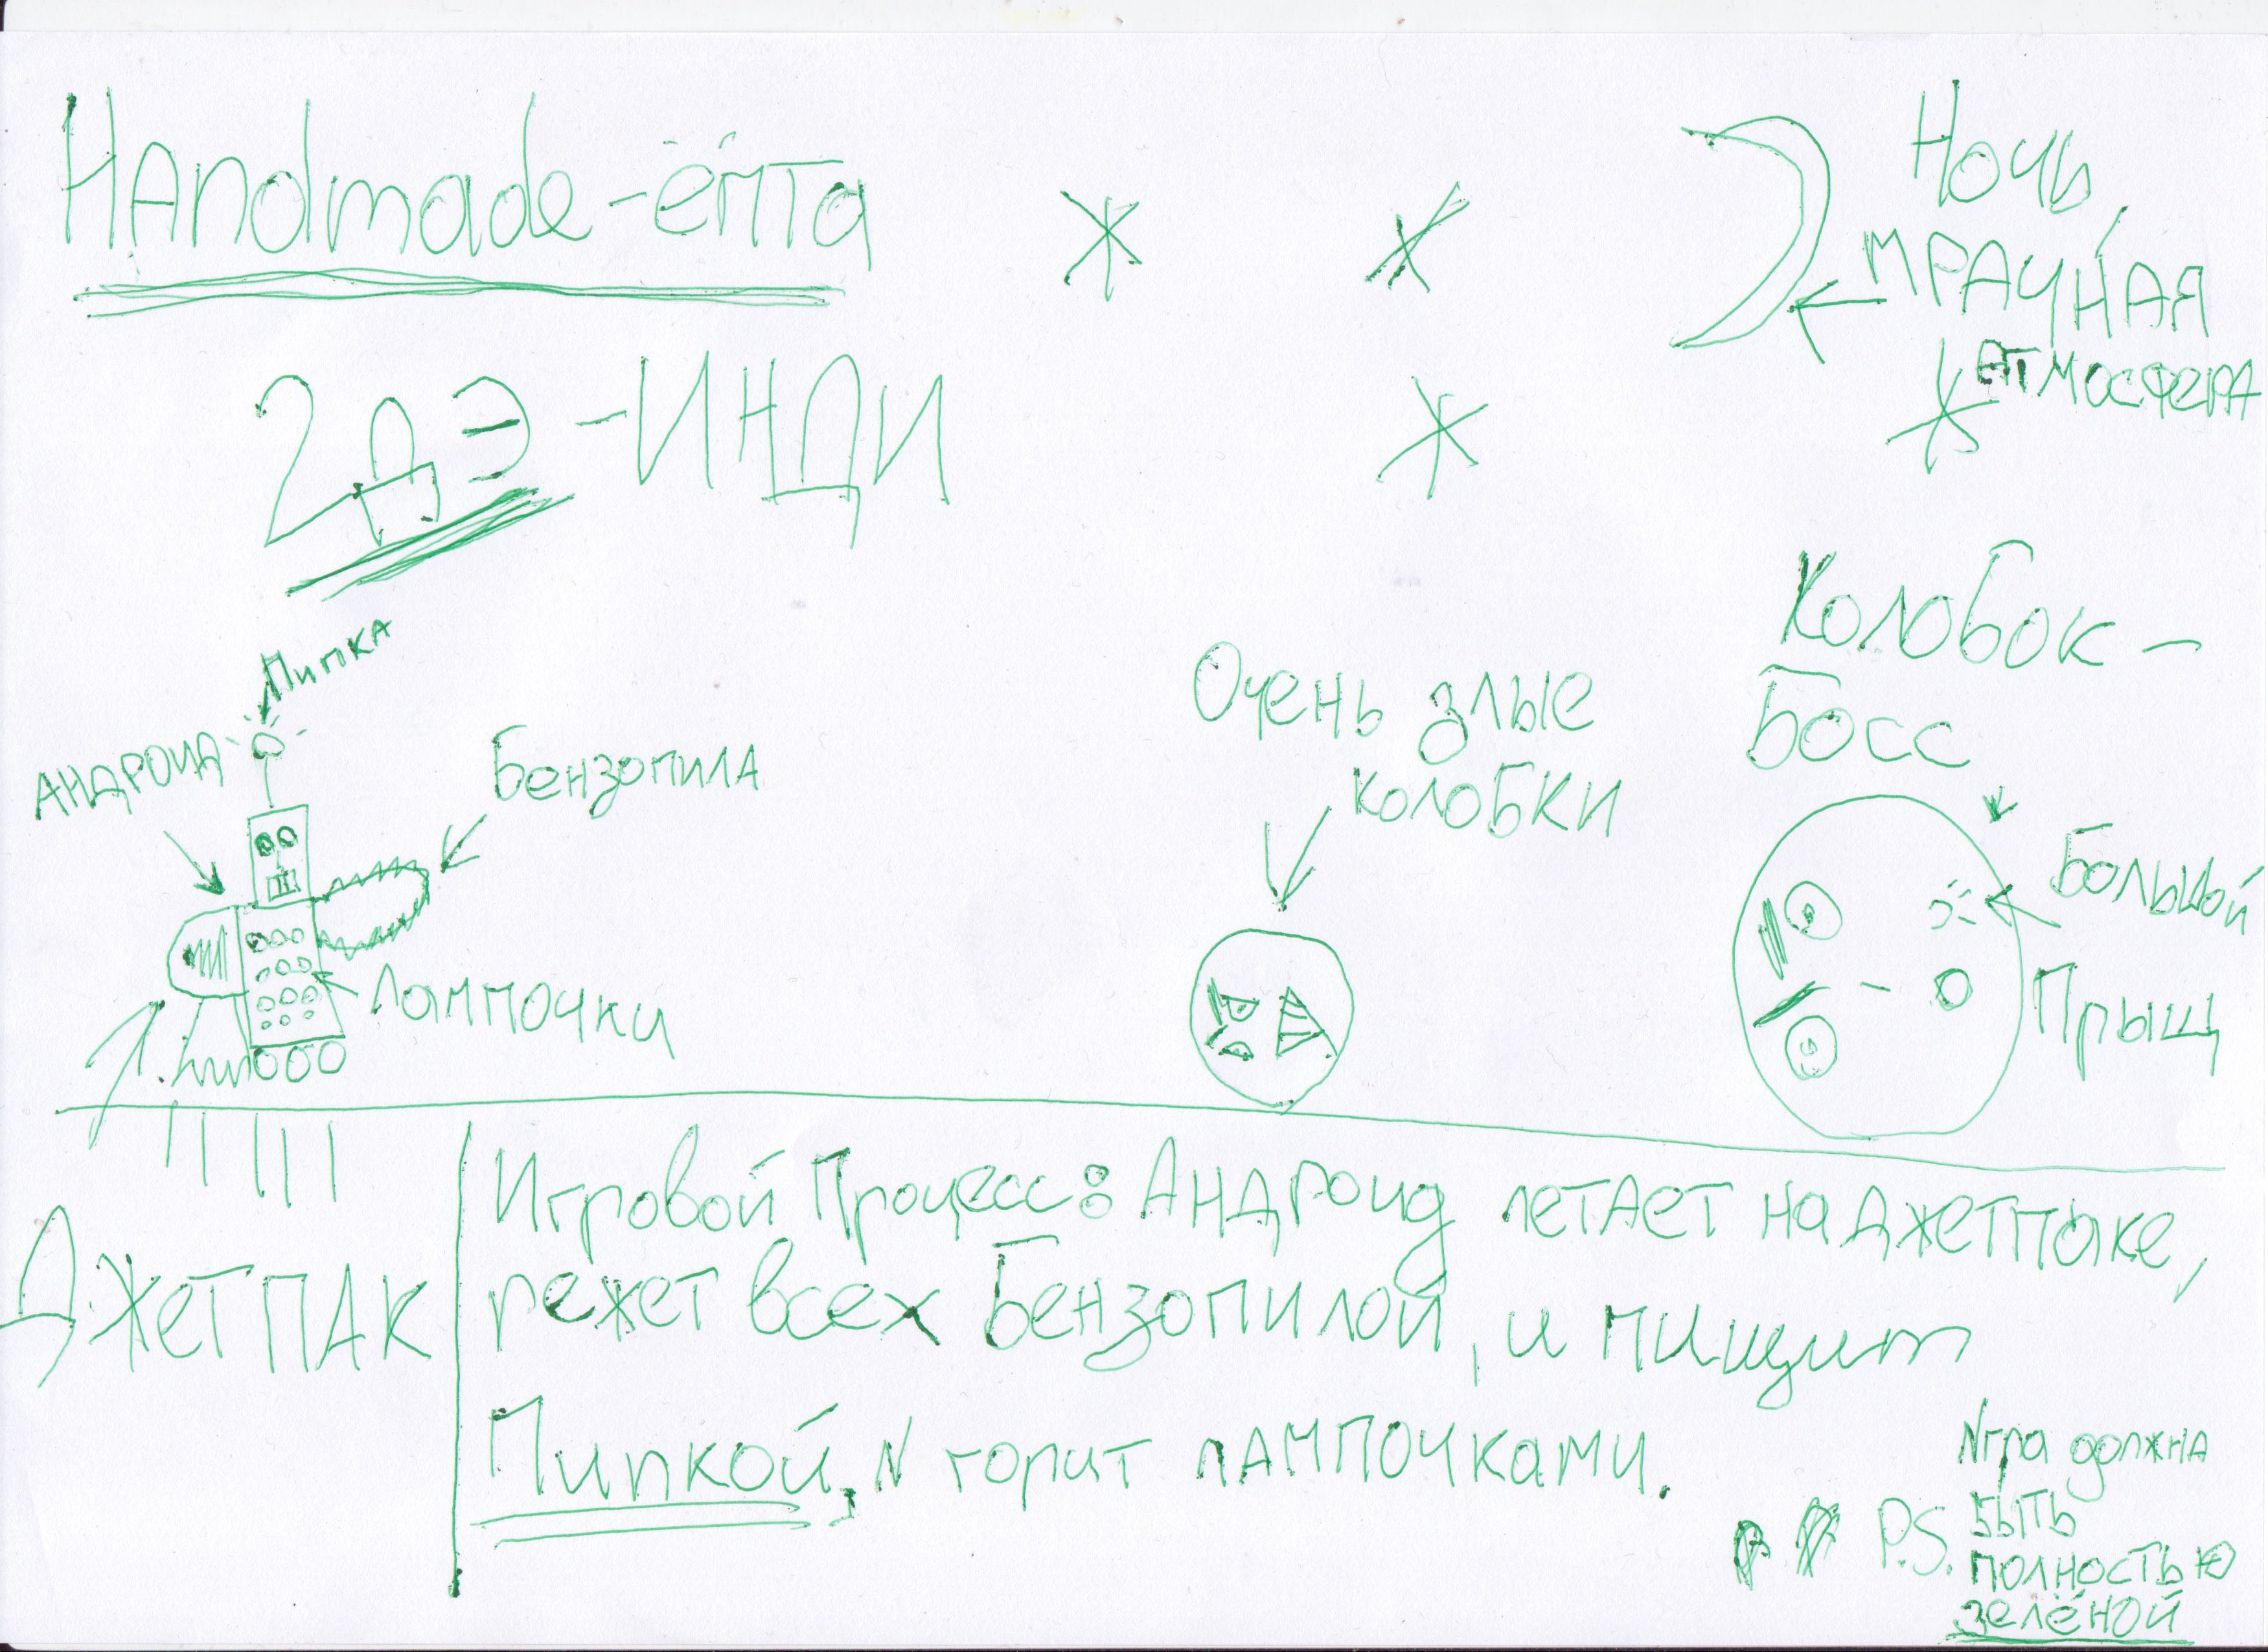 HAndmade-ёпта
2дЭ-ИНДИ
Ночь,
МРАЧНАЯ
АТМОСФЕРА
Пипка
АНДРОИД
Бензопила
Лампочки
Очень злые
колобки
Колобок-
Босс
Большой
Прыщ
ДжетПАК
Игровой Процесс: Андроид летает на Джетпаке,
режет всех Бензопилой, и пищит
Пипкой, И горит лампочками.
P.S. Игра должна
быть
полностью
зелёной